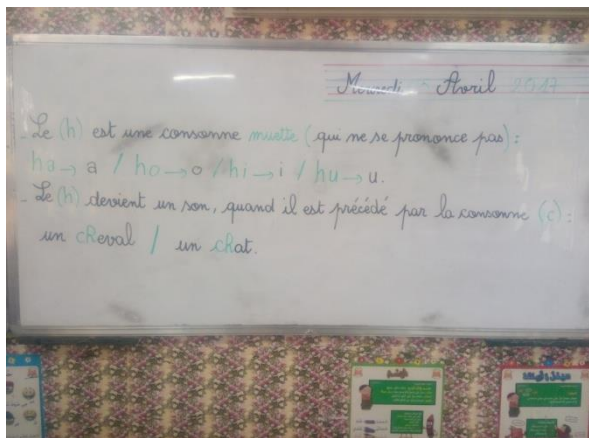 Mercredi Avril 2017
- Le (h) est une consonne muette (qui ne se prononce pas) :
ha → a / ho → o / hi → i / hu → u.
- Le (h) devient un son, quand il est précédé par la consonne (c) :
un cheval / un chat.